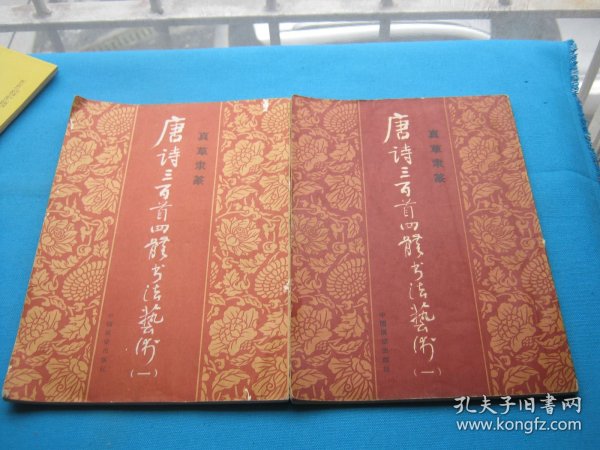 真草隶篆
唐诗三百首四體书法藝術
(一)
中国展望出版社
真草隶篆
唐诗三百首四體书法藝術
(一)
中国展望出版社
孔夫子旧书网
www.kongfz.com